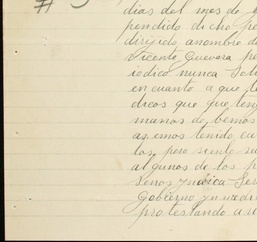 #
dias del mes de
pendido dicho pe
dirijido anombre de
Vicente Guevara per
iodico nunca Sali
en cuanto a que le
dicos que que teng
manas de bemos
as emos tenido cu
tos, pero siente su
algunos de los p
senos yndica Ser
Gobierno ynmedia
protestando a u